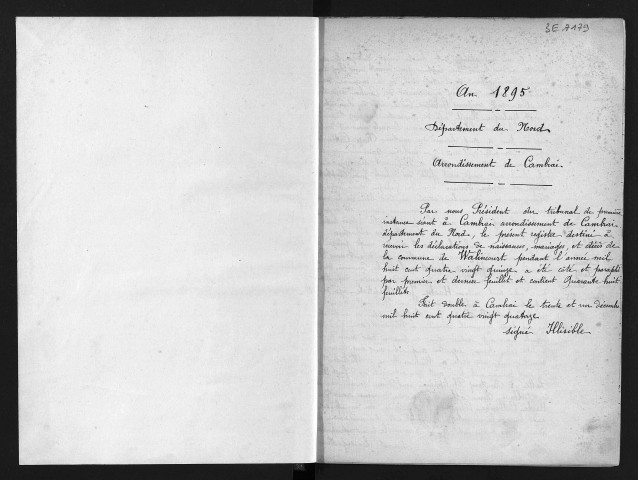 3E 7179
An 1895
Département du Nord
Arrondissement de Cambrai
Par nous Président du tribunal de première
instance séant à Cambrai arrondissement de Cambrai
département du Nord, le présent registre destiné à
recevoir les déclarations de naissances, mariages, et décès de
la commune de Walincourt pendant l'année mil
huit cent quatre vingt quinze a été coté et paraphé
par premier et dernier feuillet et contient Quarante huit
feuillets
Fait double à Cambrai le trente et un décembre
mil huit cent quatre vingt quatorze
signé Illisible